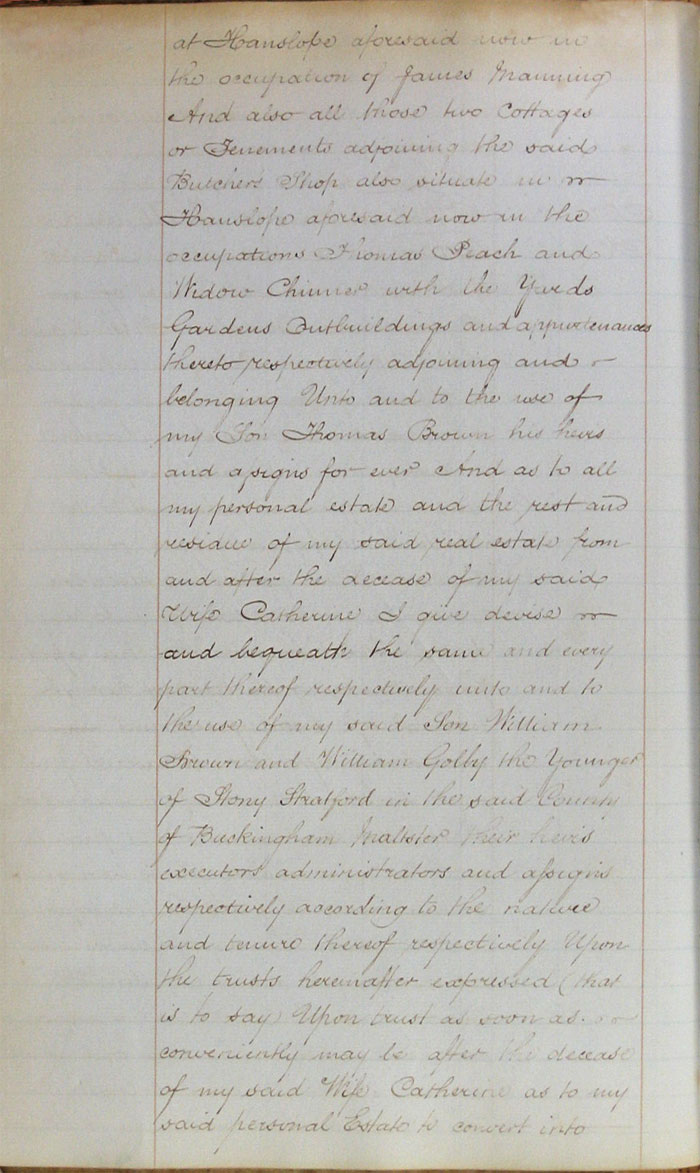 at Hanslope aforesaid now in
the occupation of James Manning
And also all those two Cottages
or Tenements adjoining the said
Butchers Shop also situate in
Hanslope aforesaid now in the
occupations Thomas Peach and
Widow Chinner with the Yards
Gardens Outbuildings and appurtenances
thereto respectively adjoining and
belonging Unto and to the use of
my Son Thomas Brown his heirs
and assigns for ever And as to all
my personal estate and the rest and
residue of my said real estate from
and after the decease of my said
Wife Catherine I give devise
and bequeath the same and every
part thereof respectively unto and to
the use of my said Son William
Brown and William Golby the Younger
of Stony Stratford in the said County
of Buckingham Maltster their heirs
executors administrators and assigns
respectively according to the nature
and tenure thereof respectively Upon
the trusts hereinafter expressed (that
is to say) Upon trust as soon as
conveniently may be after the decease
of my said Wife Catherine as to my
said personal Estate to convert into